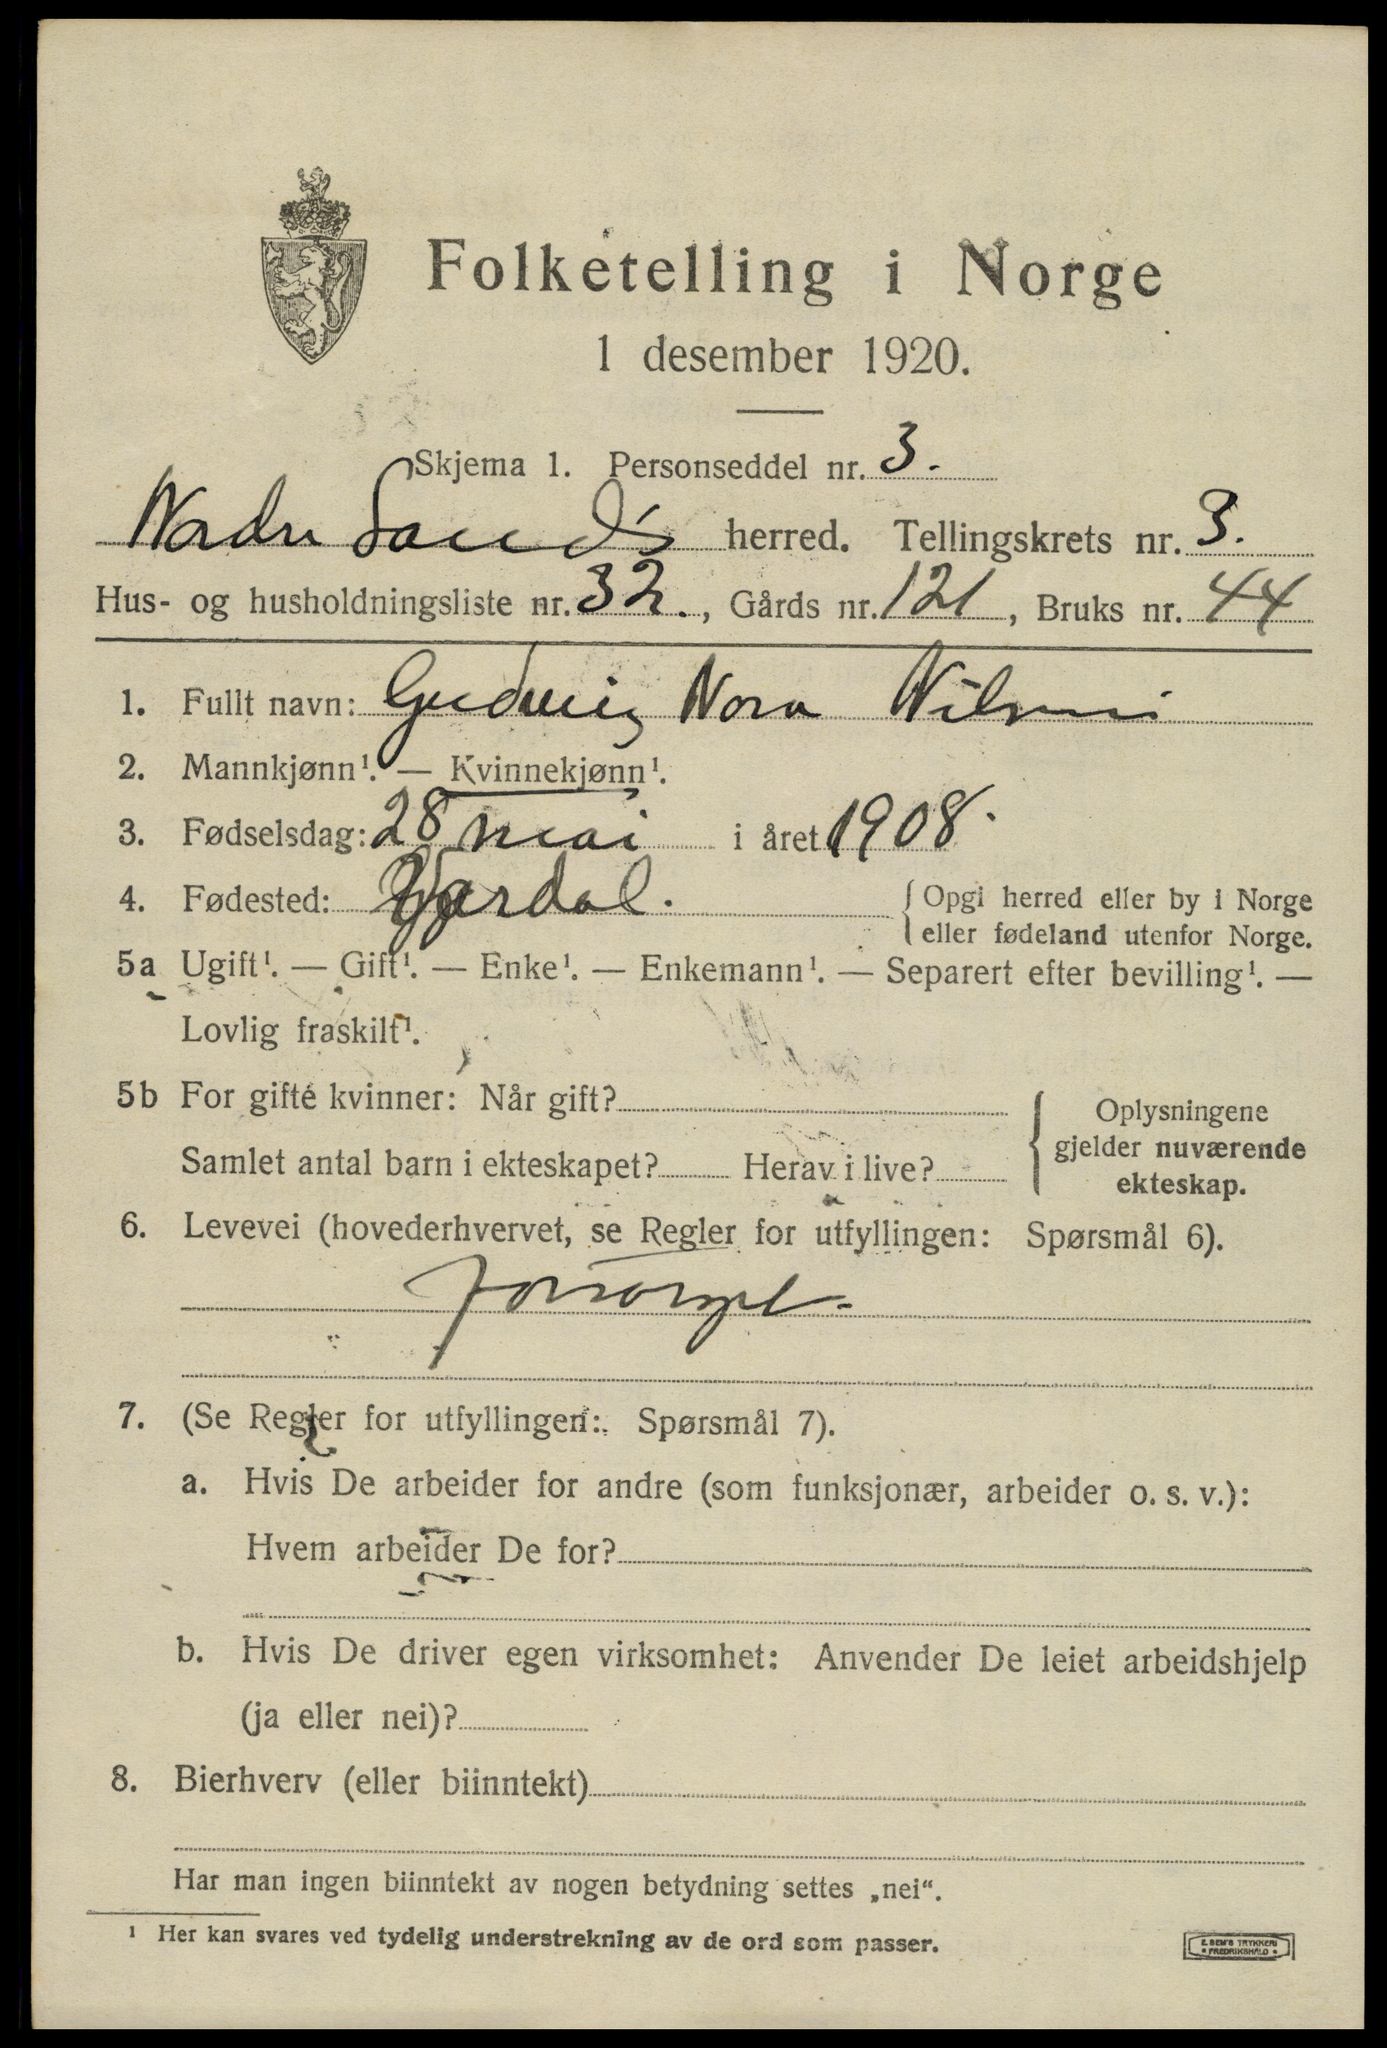 Folketelling i Norge
1 desember 1920.
Skjema 1. Personseddel nr. 3.
Nordre Land's herred. Tellingskrets nr. 3.
Hus- og husholdningsliste nr. 32., Gårds nr. 121, Bruks nr. 44
1. Fullt navn: Gudveig Nora Nilsen
2. Mannkjønn¹. — Kvinnekjønn¹.
3. Fødselsdag: 28 mai i året 1908.
4. Fødested: Vardal. { Opgi herred eller by i Norge
eller fødeland utenfor Norge.
5a Ugift¹. — Gift¹. — Enke¹. — Enkemann¹. — Separert efter bevilling¹. —
Lovlig fraskilt¹.
5b For gifte kvinner: Når gift?
Samlet antal barn i ekteskapet? Herav i live?
{ Oplysningene
gjelder nuværende
ekteskap.
6. Levevei (hovederhvervet, se Regler for utfyllingen: Spørsmål 6).
forsørget.
7. (Se Regler for utfyllingen: Spørsmål 7).
a. Hvis De arbeider for andre (som funksjonær, arbeider o. s. v.):
Hvem arbeider De for?
b. Hvis De driver egen virksomhet: Anvender De leiet arbeidshjelp
(ja eller nei)?
8. Bierhverv (eller biinntekt)
Har man ingen biinntekt av nogen betydning settes „nei“.
¹ Her kan svares ved tydelig understrekning av de ord som passer.
E. SEM'S TRYKKERI
• FREDRIKSHALD •